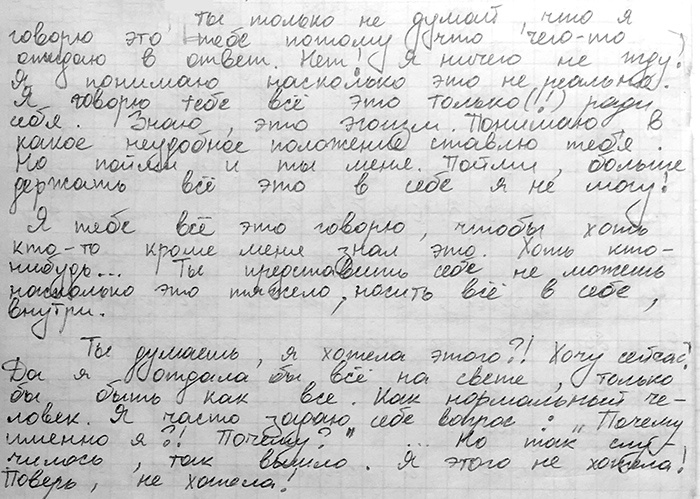 ты только не думай, что я
говорю это тебе потому что чего-то
ожидаю в ответ. Нет! Я ничего не жду!
Я понимаю насколько это не реально.
Я говорю тебе всё это только(!) ради
себя. Знаю, это эгоизм. Понимаю в
какое неудобное положение ставлю тебя.
Но пойми и ты меня. Пойми, больше
держать всё это в себе я не могу!
Я тебе всё это говорю, чтобы хоть
кто-то кроме меня знал это. Хоть кто-
нибудь... Ты представить себе не можешь
насколько это тяжело, носить всё в себе,
внутри.
Ты думаешь, я хотела этого?! Хочу сейчас?
Да я отдала бы всё на свете, только
бы быть как все. Как нормальный че-
ловек. Я часто задаю себе вопрос: „Почему
именно я?! Почему?" ... Но так слу-
чилось, так вышло. Я этого не хотела!
Поверь, не хотела!